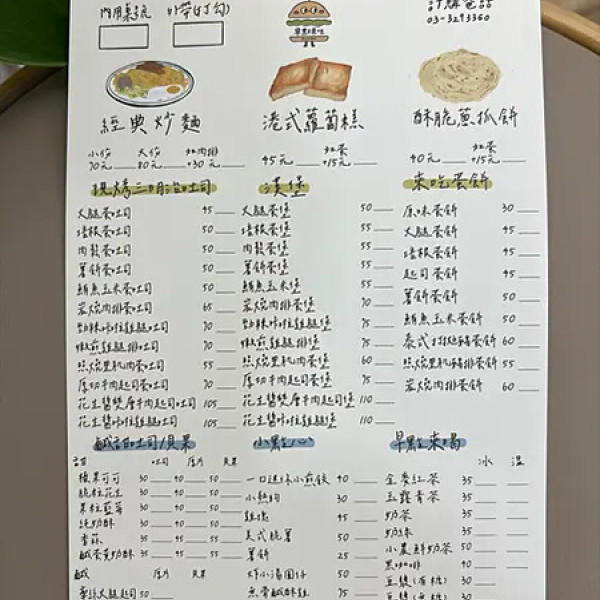 內用桌號 外帶(打勾) 訂購電話
03-3293360
經典炒麵 港式蘿蔔糕 酥脆蔥抓餅
小份 大份 加肉排 加蛋 加蛋
70元 80元 +30元 45元 +15元 40元 +15元
現烤三明治吐司 漢堡 來吃蛋餅
火腿蛋吐司 45 火腿蛋堡 50 原味蛋餅 30
培根蛋吐司 50 培根蛋堡 55 火腿蛋餅 45
肉鬆蛋吐司 50 肉鬆蛋堡 55 培根蛋餅 45
薯餅蛋吐司 50 薯餅蛋堡 55 起司蛋餅 45
鮪魚玉米蛋吐司 50 鮪魚玉米堡 55 薯餅蛋餅 50
炭燒肉排蛋吐司 65 炭燒肉排蛋堡 鮪魚玉米蛋餅 50
勁辣咔啦雞腿吐司 70 勁辣咔啦雞腿堡 75 泰式打拋豬蛋餅 60
嫩煎雞腿排吐司 70 嫩煎雞腿排堡 75 照燒里肌豬排蛋餅 55
照燒里肌肉蛋吐司 55 照燒里肌肉蛋堡 60 炭燒肉排蛋餅 60
厚切牛肉起司吐司 70 厚切牛肉起司蛋堡 75
花生醬雙層牛肉起司吐司 105 花生醬雙層牛肉起司堡 110
花生醬咔啦雞腿吐司 105 花生醬咔啦雞腿堡 110
鹹甜吐司/貝果 小點心 早點來喝
甜 吐司 厚片 貝果 冰 溫
榛果可可 30 40 50 一口迷你小煎餃 40 金麥紅茶 35
脆粒花生 30 40 50 小熱狗 30 玉露青茶 35
果粒藍莓 30 40 50 雞塊 45 奶茶 35
純奶酥 30 40 50 美式脆薯 50 奶綠 35
香蒜 35 45 55 薯餅 25 小農鮮奶茶 50
鹹蛋黃奶酥 35 45 55 炸小湯圓 50 黑咖啡 40
鹹 厚片 貝果 無骨鹹酥雞 豆漿(有糖) 30
火腿起司 50 豆漿(無糖) 30